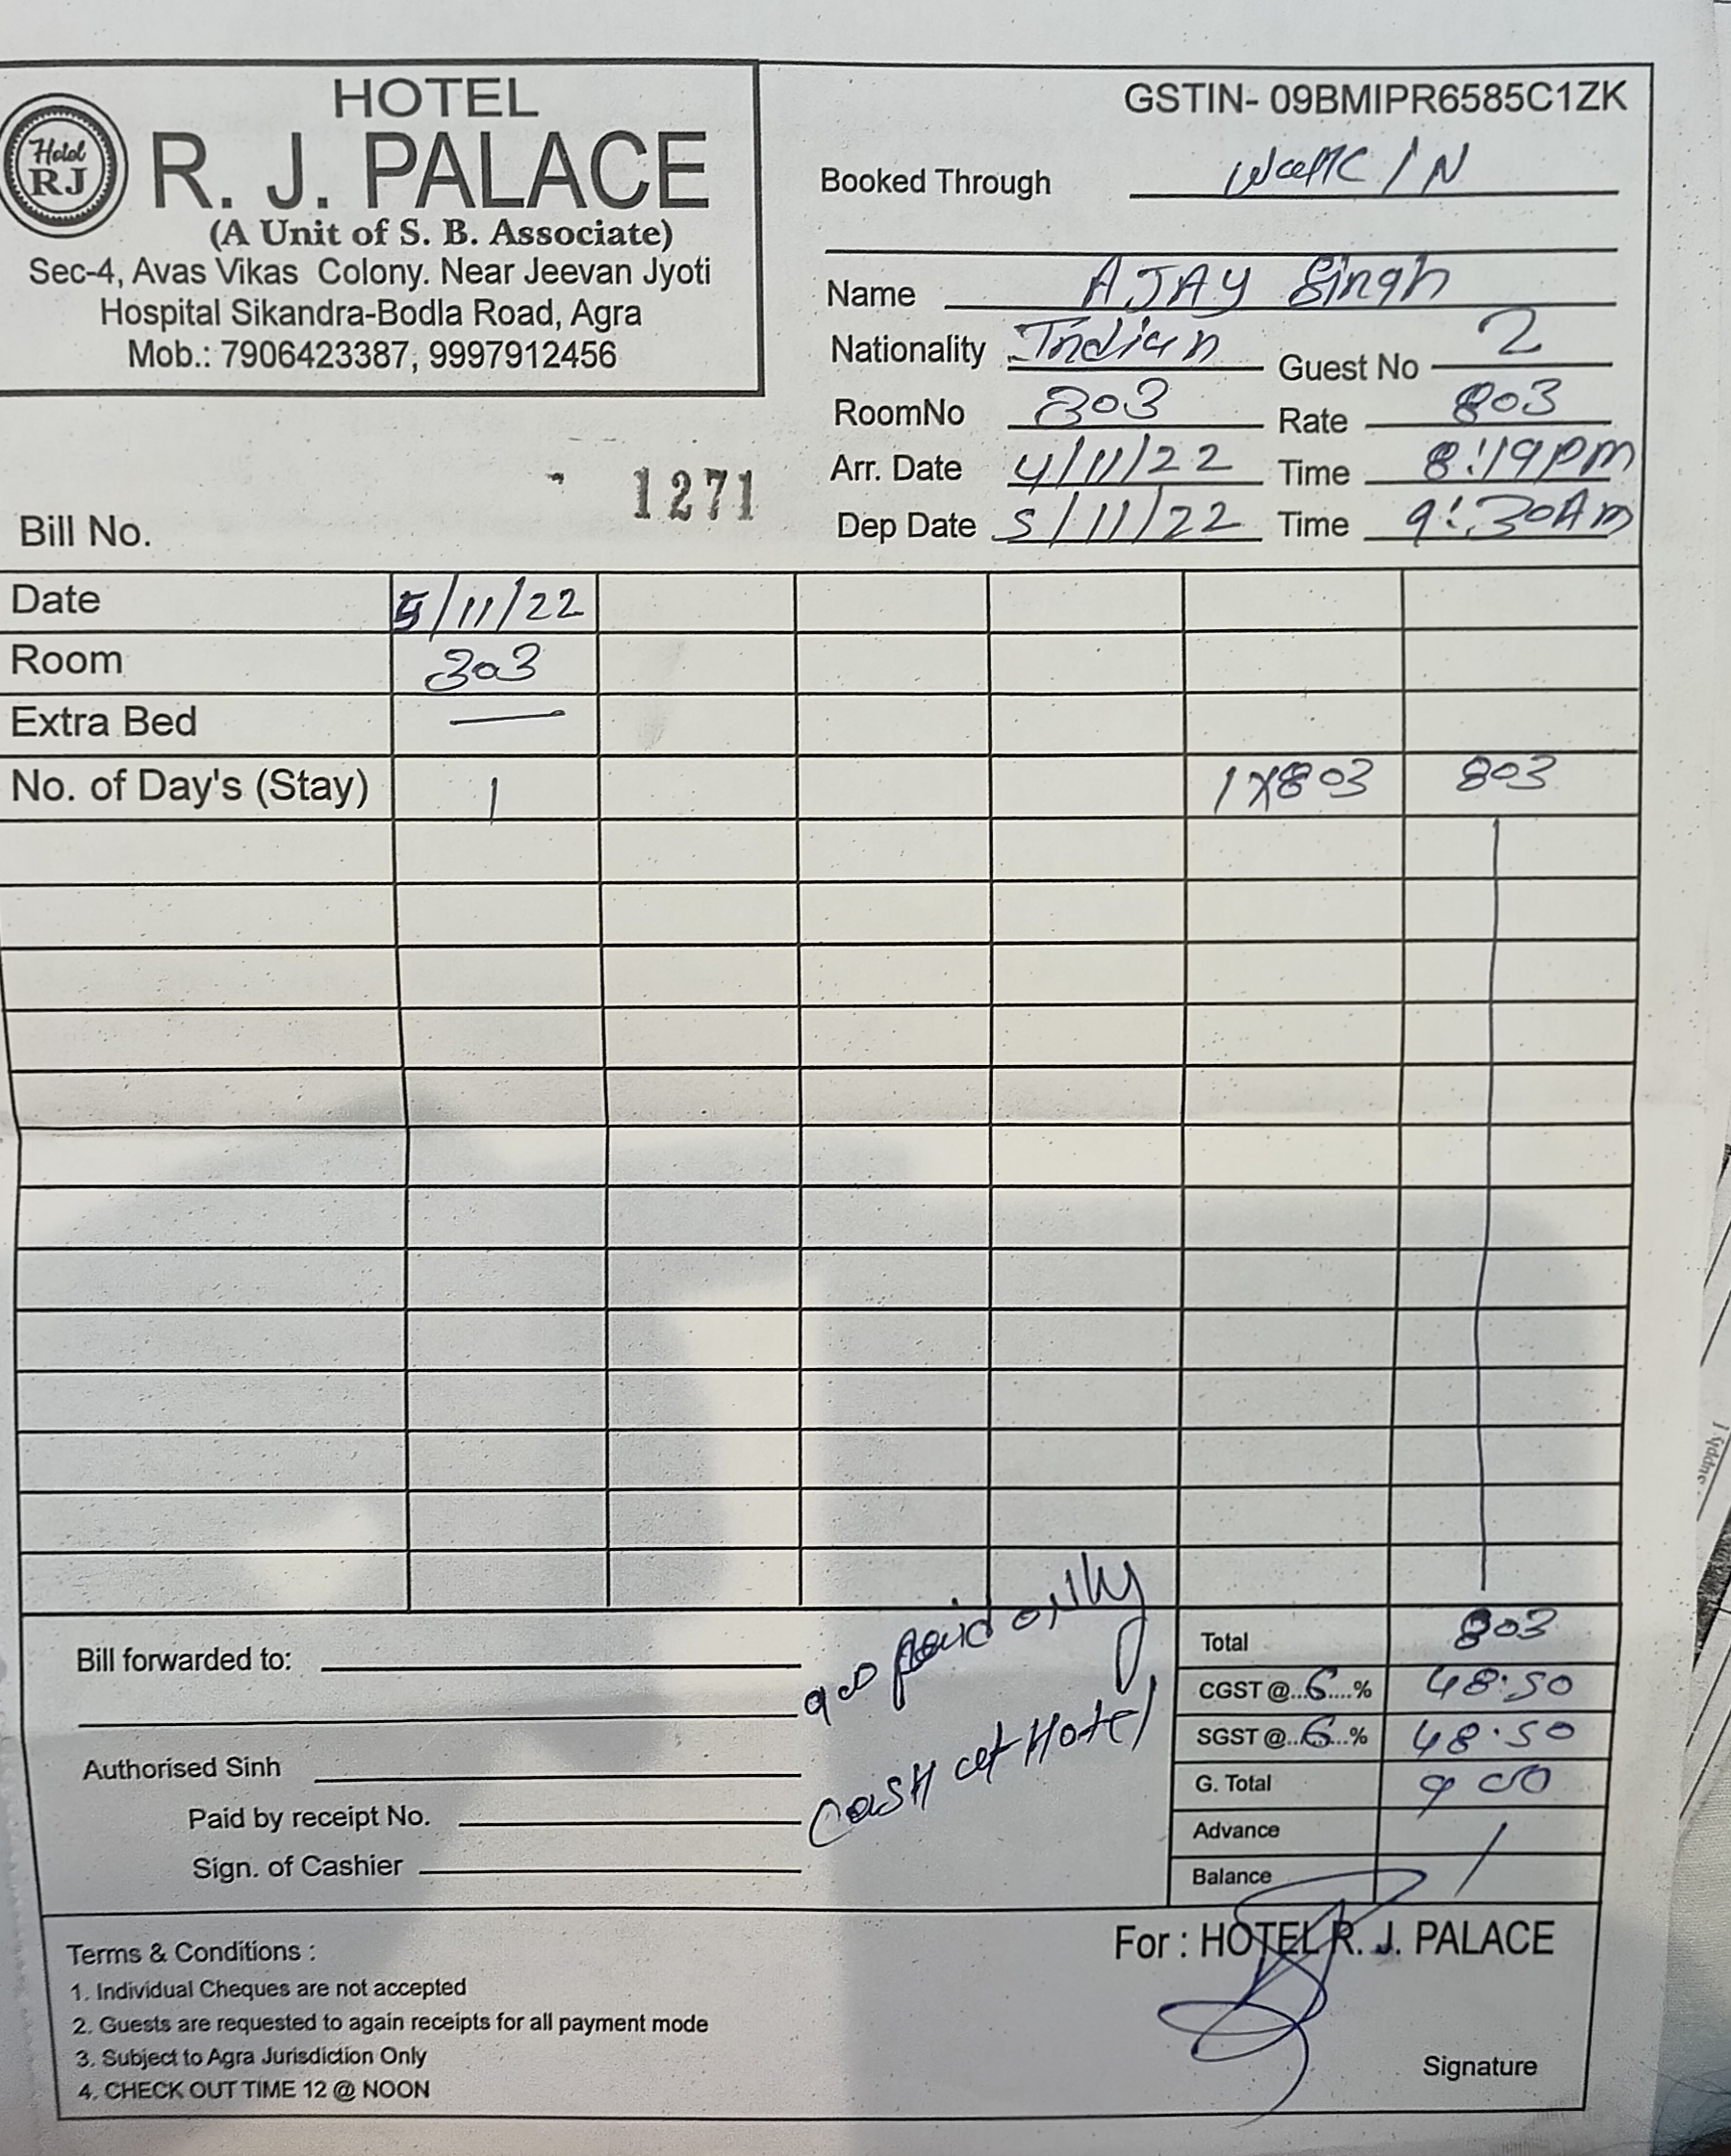 HOTEL
R. J. PALACE
(A Unit of S. B. Associate)
Sec-4, Avas Vikas Colony. Near Jeevan Jyoti
Hospital Sikandra-Bodla Road, Agra
Mob.: 7906423387, 9997912456
Hotel
RJ
GSTIN- 09BMIPR6585C1ZK
Booked Through Walk IN
Name AJAY Singh
Nationality Indian Guest No 2
RoomNo 303 Rate 803
Arr. Date 4/11/22 Time 8:19PM
Dep Date 5/11/22 Time 9:30AM
Bill No. 1271
Date 5/11/22
Room 303
Extra Bed —
No. of Day's (Stay) 1 1X803 803
Bill forwarded to:
Authorised Sinh
Paid by receipt No.
Sign. of Cashier
900 paid only
Cash at Hotel
Total 803
CGST @..6....% 48.50
SGST @..6...% 48.50
G. Total 900
Advance /
Balance
For : HOTEL R. J. PALACE
Signature
Terms & Conditions :
1. Individual Cheques are not accepted
2. Guests are requested to again receipts for all payment mode
3. Subject to Agra Jurisdiction Only
4. CHECK OUT TIME 12 @ NOON